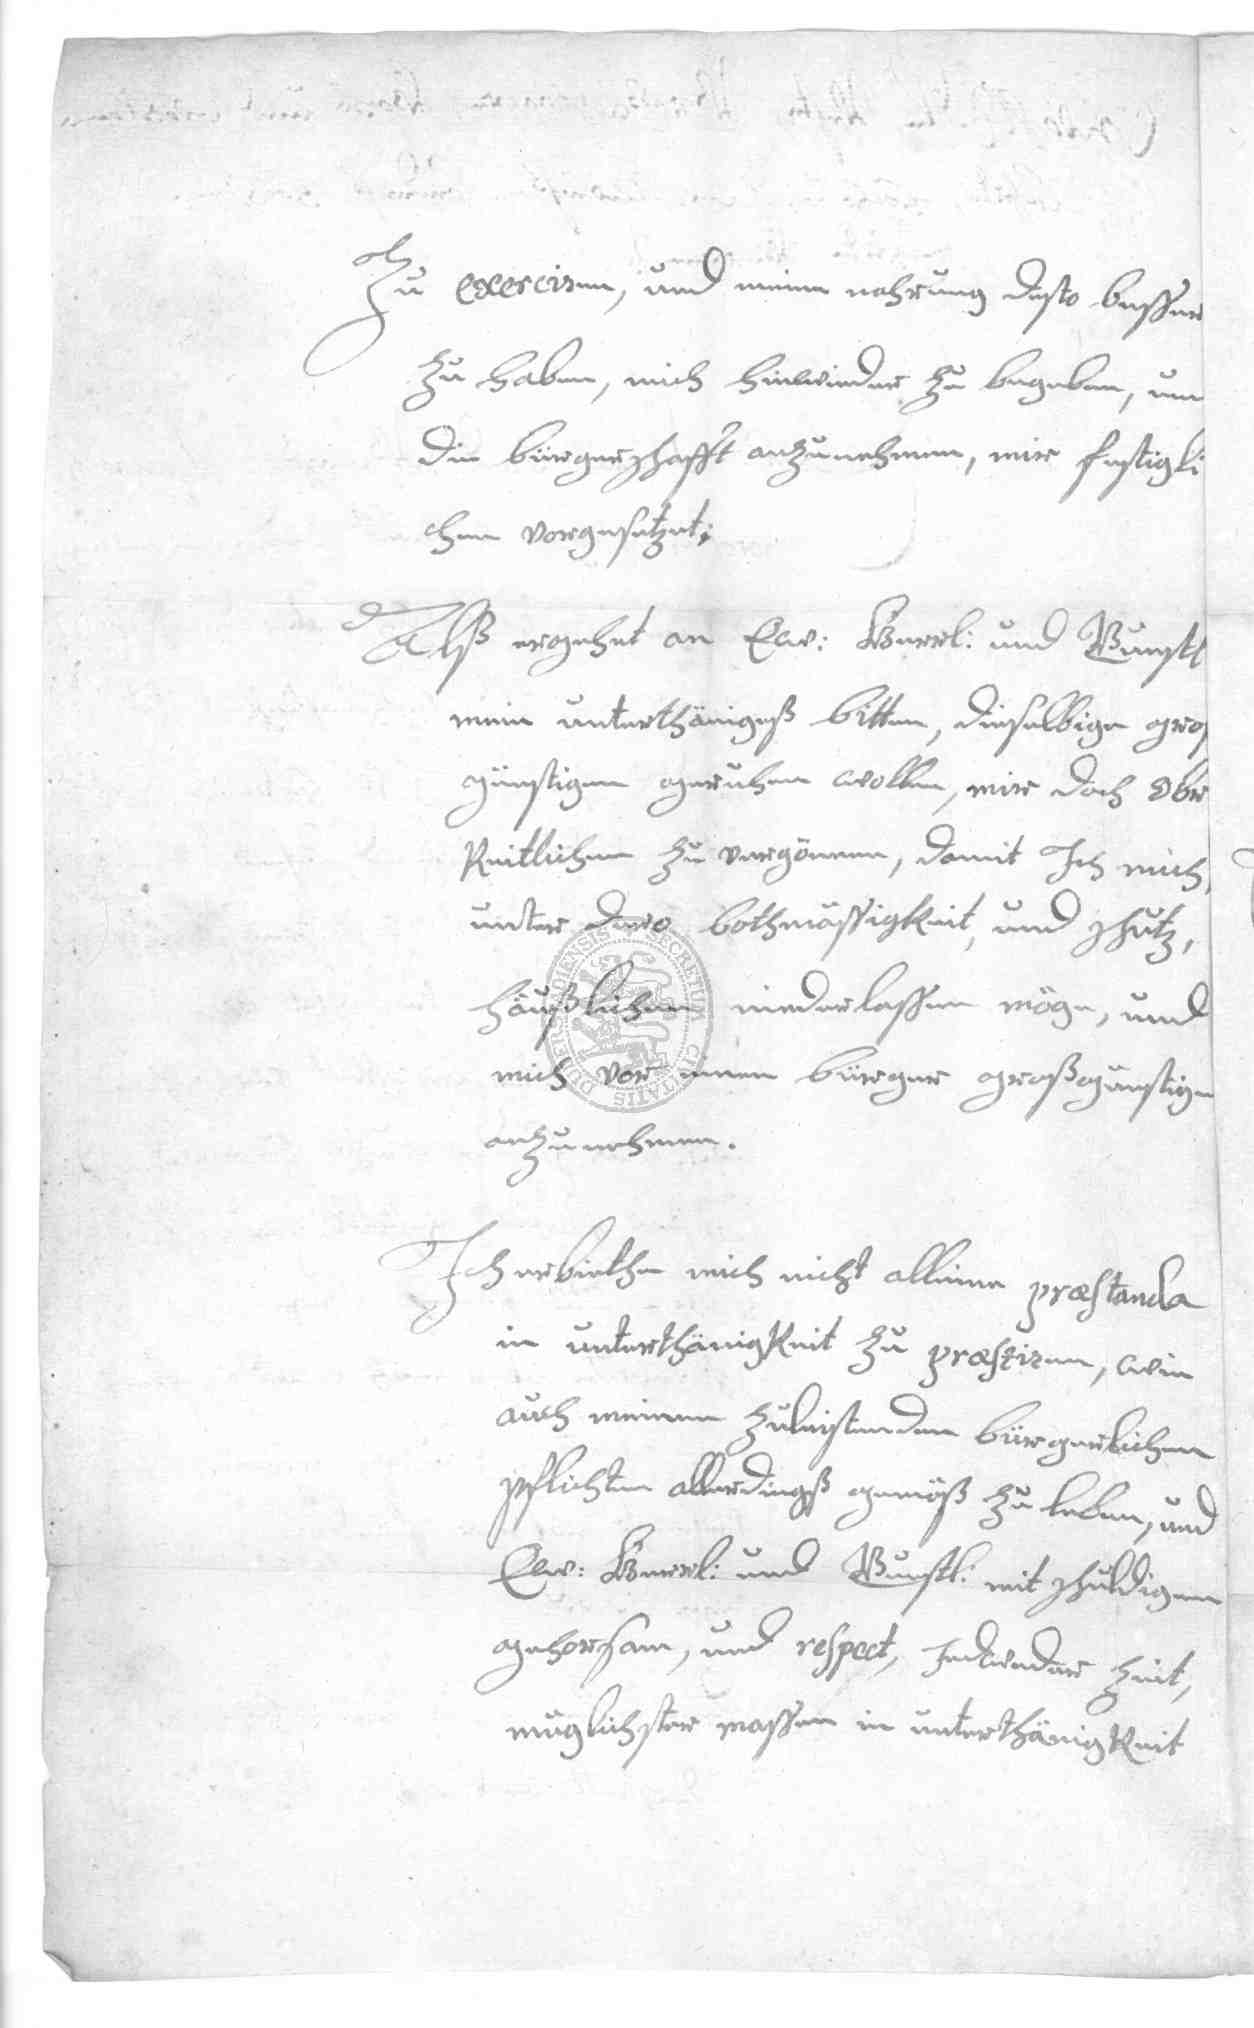 Zu exerciren, und meine nahrung desto besser
zu haben, mich hinwieder zu begeben, um
die bürgerschafft anzunehmen, mir festigli
chen vorgesetzet;
Alß ergehet an Ew: Gnerl: und Gunstl
mein unterthänigeß bitten, dieselbige groß
günstigen geruhen wollen, mir doch obr
Keitlichen zu vergönnen, damit Ich mich,
unter dero bothmässigKeit, und schutz,
häußlichen niederlassen möge, und
mich vor einen bürger großgünstige
anzunehmen.
Ich erbiethe mich nicht alleine præstanda
in unterthänigKeit zu præstiren, wie
auch meinen zuleistenden bürgerlichen
pflichten allerdingß gemäß zu leben, und
Ew: Gnerl: und Gunstl: mit schuldigen
gehorsam, und respect, Jedweder Zeit,
müglichster massen in unterthänigKeit
SECRETUM CIVITATIS